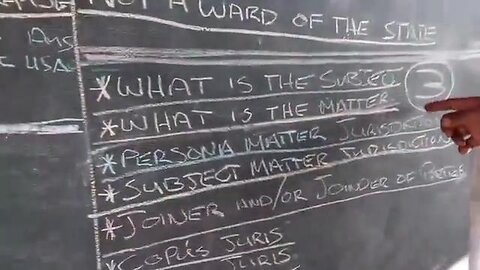 NOT A WARD OF THE STATE
Ans
USA
* WHAT IS THE SUBJECT
3
* WHAT IS THE MATTER
* PERSONA MATTER JURISDICTION
* SUBJECT MATTER JURISDICTION
* JOINER AND/OR JOINDER OF PARTIES
* COPUS JURIS
JURIS